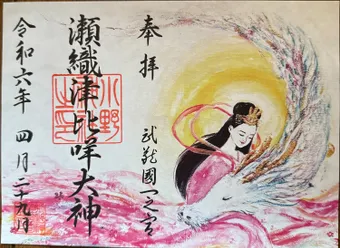 奉拝
武蔵國一之宮
瀬織津比咩大神
小野
神社
之印
令和六年 四月二十九日